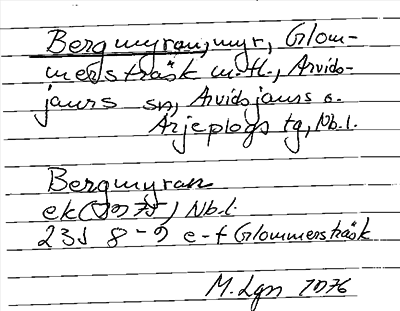 Bergmyran, myr, Glom-
mersträsk m.fl., Arvids-
jaurs sn, Arvidsjaurs o.
Arjeplogs tg, Nb.l.
Bergmyran
ek (1975), Nb.l.
23J 8-9 e-f Glommersträsk
M. Lgn 1976